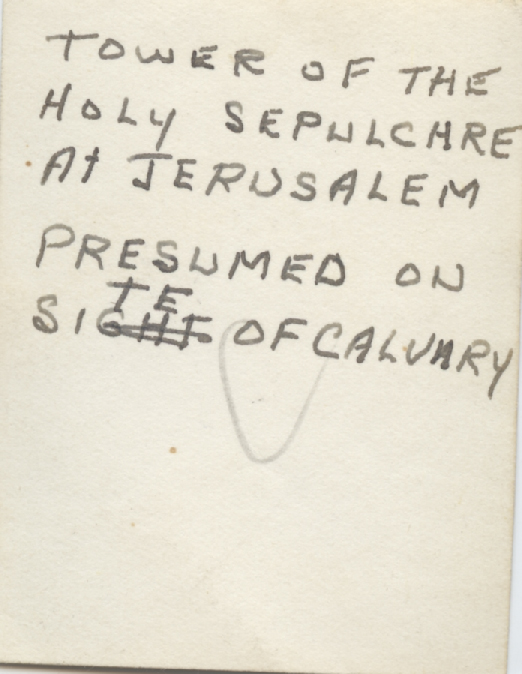 TOWER OF THE
HOLY SEPULCHRE
At JERUSALEM
PRESUMED ON
SITE OF CALVARY